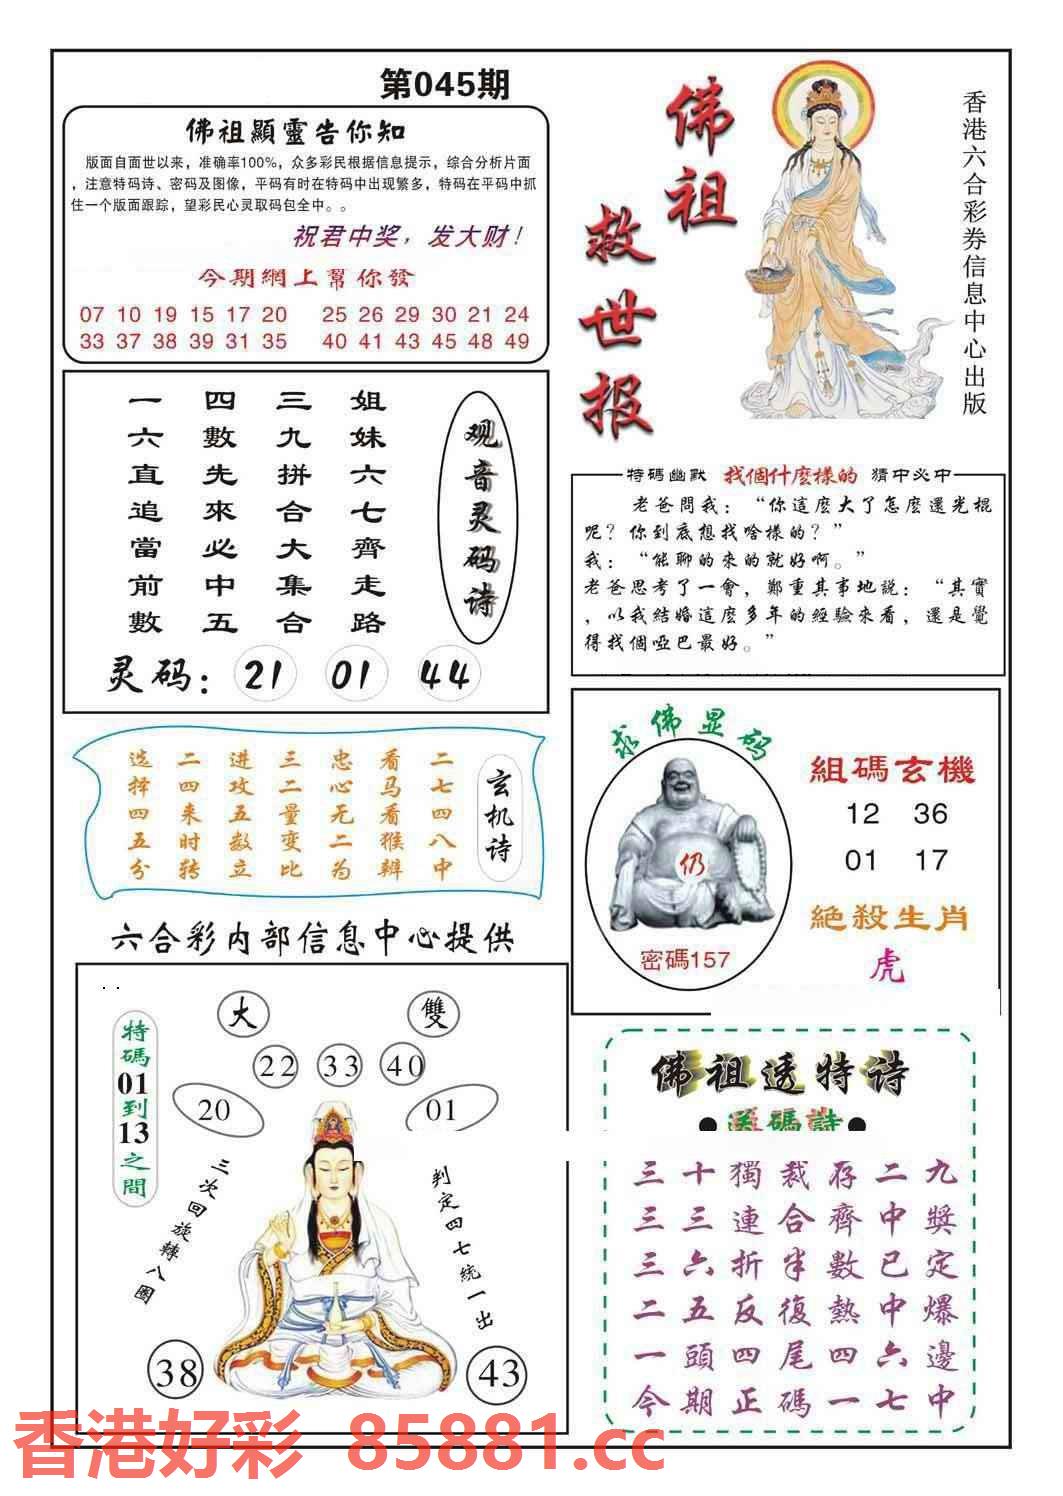 第045期
佛祖顯靈告你知
版面自面世以来，准确率100%，众多彩民根据信息提示，综合分析片面
，注意特码诗、密码及图像，平码有时在特码中出现繁多，特码在平码中抓
住一个版面跟踪，望彩民心灵取码包全中。。
祝君中奖，发大财！
今期網上幫你發
07 10 19 15 17 20 25 26 29 30 21 24
33 37 38 39 31 35 40 41 43 45 48 49
佛祖
救世报
香港六合彩券信息中心出版
观音灵码诗
姐妹六七齊走路
三九拼合大集合
四數先來必中五
一六直追當前數
灵码：21 01 44
特碼幽默 找個什麼樣的 猜中必中
老爸問我：“你這麼大了怎麼還光棍
呢？你到底想找啥樣的？”
我：“能聊的來的就好啊。”
老爸思考了一會，鄭重其事地説：“其實
，以我結婚這麼多年的經驗來看，還是覺
得找個啞巴最好。”
玄机诗
二七四八中
看马看猴辨
忠心无二为
三二量变比
进攻五数立
二四来时转
选择四五分
求佛显码
仍
密碼157
組碼玄機
12 36
01 17
絕殺生肖
虎
六合彩内部信息中心提供
大 雙
22 33 40
20 01
特碼01到13之間
三次回旋轉八圈
判定四七統一出
38 43
佛祖透特诗
●送碼詩●
三十獨裁存二九
三三連合齊中獎
三六折半數已定
二五反復熱中爆
一頭四尾四六邊
今期正碼一七中
香港好彩 85881.cc